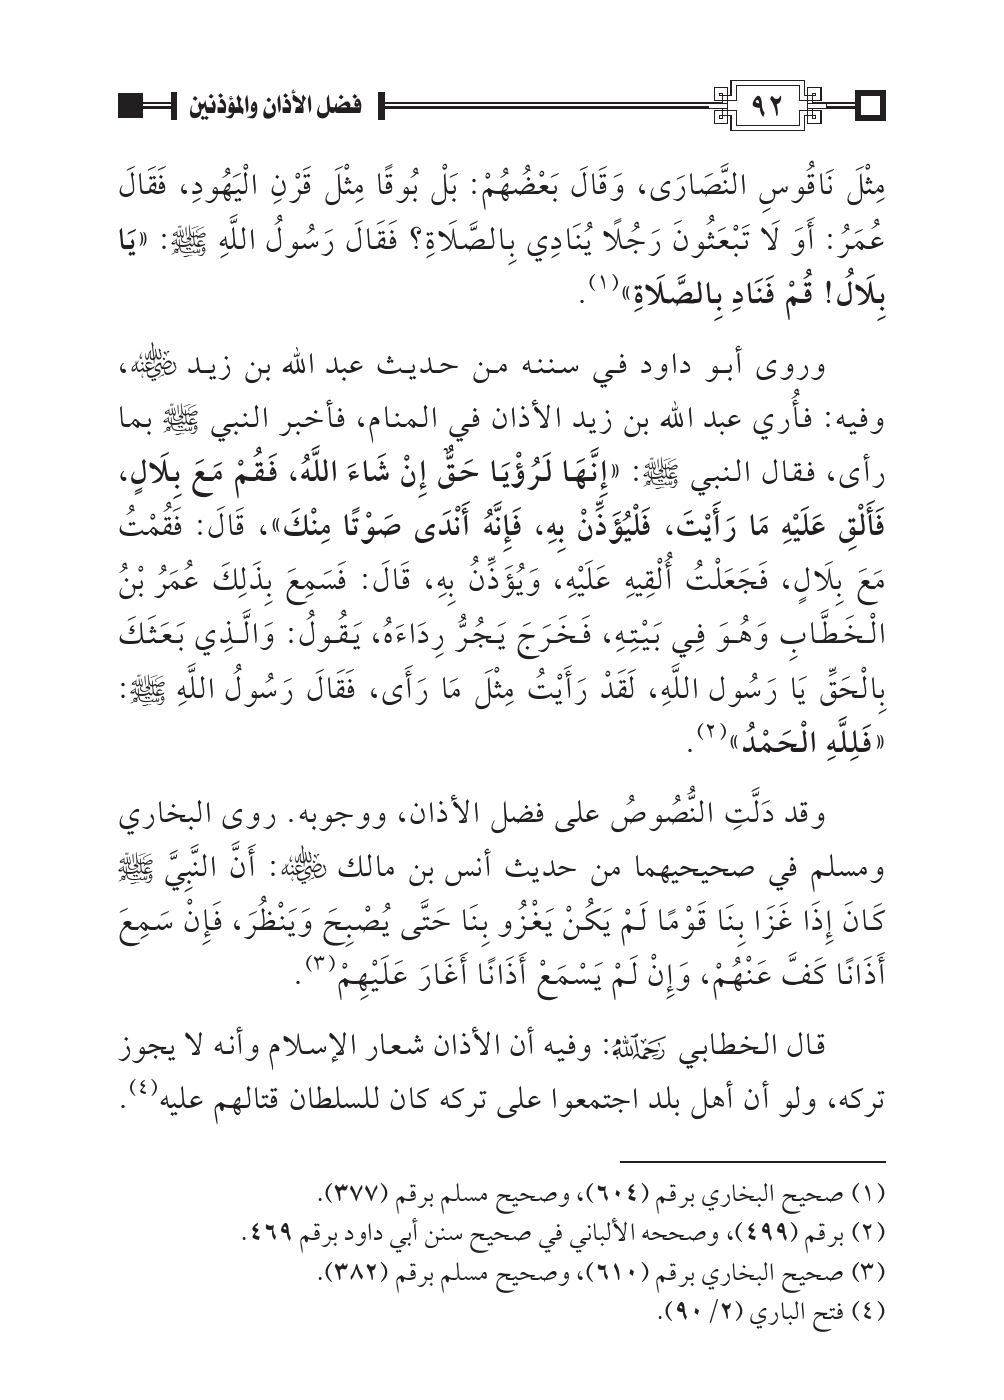 ٩٢ فضل الأذان والمؤذنين
مِثْلَ نَاقُوسِ النَّصَارَى، وَقَالَ بَعْضُهُمْ: بَلْ بُوقًا مِثْلَ قَرْنِ الْيَهُودِ، فَقَالَ
عُمَرُ: أَوَ لَا تَبْعَثُونَ رَجُلًا يُنَادِي بِالصَّلَاةِ؟ فَقَالَ رَسُولُ اللَّهِ ﷺ: «يَا
بِلَالُ! قُمْ فَنَادِ بِالصَّلَاةِ»(١).
وروى أبو داود في سننه من حديث عبد الله بن زيد رضي الله عنه،
وفيه: فأُري عبد الله بن زيد الأذان في المنام، فأخبر النبي ﷺ بما
رأى، فقال النبي ﷺ: «إِنَّهَا لَرُؤْيَا حَقٌّ إِنْ شَاءَ اللَّهُ، فَقُمْ مَعَ بِلَالٍ،
فَأَلْقِ عَلَيْهِ مَا رَأَيْتَ، فَلْيُؤَذِّنْ بِهِ، فَإِنَّهُ أَنْدَى صَوْتًا مِنْكَ»، قَالَ: فَقُمْتُ
مَعَ بِلَالٍ، فَجَعَلْتُ أُلْقِيهِ عَلَيْهِ، وَيُؤَذِّنُ بِهِ، قَالَ: فَسَمِعَ بِذَلِكَ عُمَرُ بْنُ
الْخَطَّابِ وَهُوَ فِي بَيْتِهِ، فَخَرَجَ يَجُرُّ رِدَاءَهُ، يَقُولُ: وَالَّذِي بَعَثَكَ
بِالْحَقِّ يَا رَسُول اللَّهِ، لَقَدْ رَأَيْتُ مِثْلَ مَا رَأَى، فَقَالَ رَسُولُ اللَّهِ ﷺ:
«فَلِلَّهِ الْحَمْدُ»(٢).
وقد دَلَّتِ النُّصُوصُ على فضل الأذان، ووجوبه. روى البخاري
ومسلم في صحيحيهما من حديث أنس بن مالك رضي الله عنه: أَنَّ النَّبِيَّ ﷺ
كَانَ إِذَا غَزَا بِنَا قَوْمًا لَمْ يَكُنْ يَغْزُو بِنَا حَتَّى يُصْبِحَ وَيَنْظُرَ، فَإِنْ سَمِعَ
أَذَانًا كَفَّ عَنْهُمْ، وَإِنْ لَمْ يَسْمَعْ أَذَانًا أَغَارَ عَلَيْهِمْ(٣).
قال الخطابي رحمه الله: وفيه أن الأذان شعار الإسلام وأنه لا يجوز
تركه، ولو أن أهل بلد اجتمعوا على تركه كان للسلطان قتالهم عليه(٤).
(١) صحيح البخاري برقم (٦٠٤)، وصحيح مسلم برقم (٣٧٧).
(٢) برقم (٤٩٩)، وصححه الألباني في صحيح سنن أبي داود برقم ٤٦٩.
(٣) صحيح البخاري برقم (٦١٠)، وصحيح مسلم برقم (٣٨٢).
(٤) فتح الباري (٢/ ٩٠).